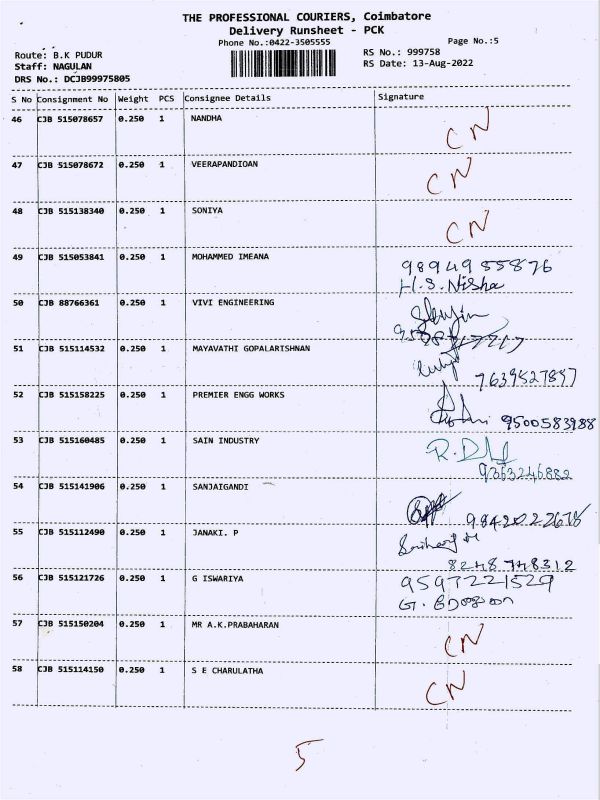 THE PROFESSIONAL COURIERS, Coimbatore
Delivery Runsheet - PCK
Phone No.:0422-3505555
Page No.:5
Route: B.K PUDUR
RS No.: 999758
Staff: NAGULAN
RS Date: 13-Aug-2022
DRS No.: DCJB99975805
S No Consignment No Weight PCS Consignee Details Signature
46 CJB 515078657 0.250 1 NANDHA CN
47 CJB 515078672 0.250 1 VEERAPANDIOAN CN
48 CJB 515138340 0.250 1 SONIYA CN
49 CJB 515053841 0.250 1 MOHAMMED IMEANA 9894955876
H.S. Nisha
50 CJB 88766361 0.250 1 VIVI ENGINEERING
51 CJB 515114532 0.250 1 MAYAVATHI GOPALARISHNAN
7639527897
52 CJB 515158225 0.250 1 PREMIER ENGG WORKS
9500583988
53 CJB 515160485 0.250 1 SAIN INDUSTRY
9363246882
54 CJB 515141906 0.250 1 SANJAIGANDI
55 CJB 515112490 0.250 1 JANAKI. P
8248748312
56 CJB 515121726 0.250 1 G ISWARIYA 9597221529
57 CJB 515150204 0.250 1 MR A.K.PRABAHARAN CN
58 CJB 515114150 0.250 1 S E CHARULATHA CN
5